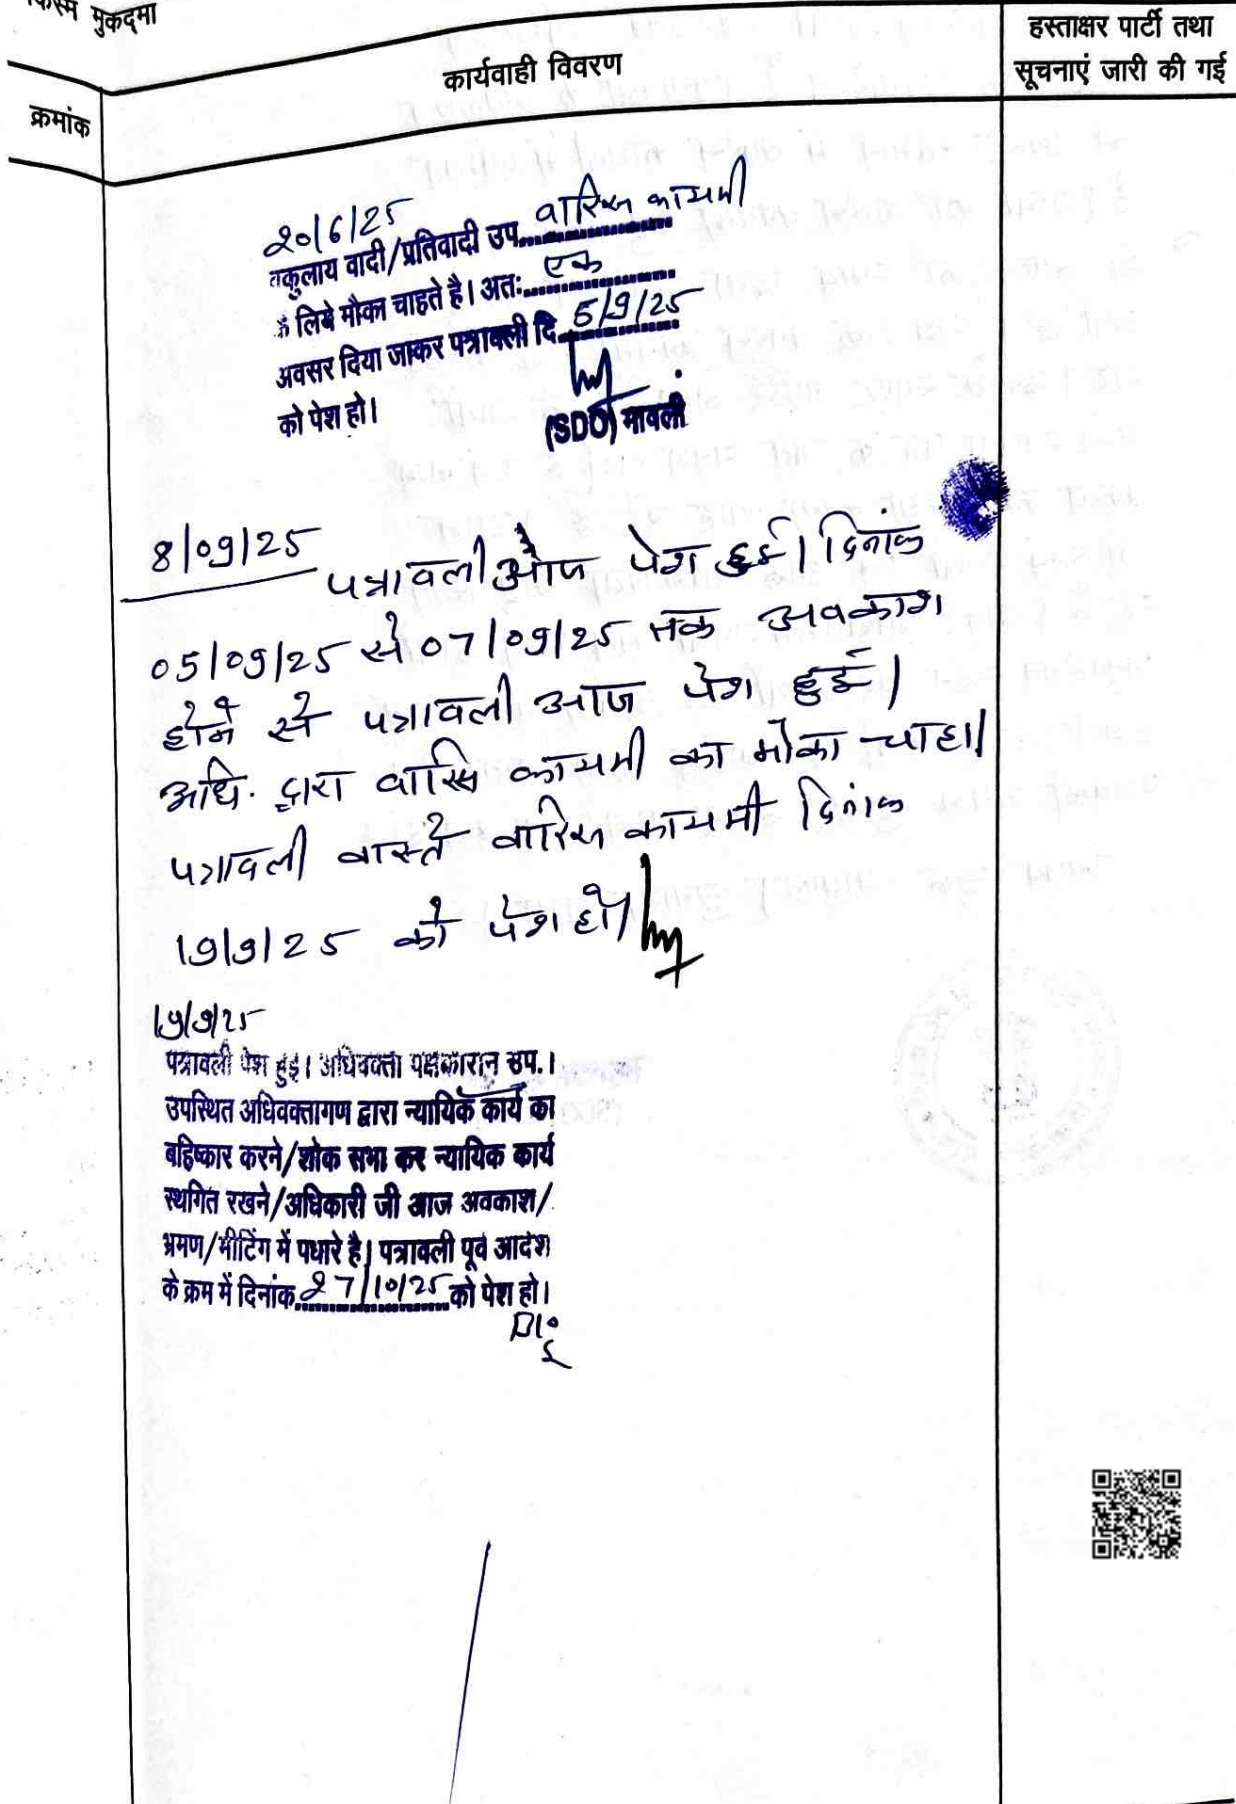 किस्म मुकद्दमा
क्रमांक
कार्यवाही विवरण
हस्ताक्षर पार्टी तथा
सूचनाएं जारी की गई
20/6/25
वकुलाय वादी/प्रतिवादी उप. वारिस कायमी
के लिये मौका चाहते है। अतः एक
अवसर दिया जाकर पत्रावली दि. 5/9/25
को पेश हो।
(SDO) मावली
8/09/25 पत्रावली आज पेश हुई। दिनांक
05/09/25 से 07/09/25 तक अवकाश
होने से पत्रावली आज पेश हुई।
अधि. द्वारा वारिस कायमी का मौका चाहा।
पत्रावली वास्ते वारिस कायमी दिनांक
19/9/25 को पेश हो।
19/9/25
पत्रावली पेश हुई। अधिवक्ता पक्षकारान उप.।
उपस्थित अधिवक्तागण द्वारा न्यायिक कार्य का
बहिष्कार करने/शोक सभा कर न्यायिक कार्य
स्थगित रखने/अधिकारी जी आज अवकाश/
भ्रमण/मीटिंग में पधारे है। पत्रावली पूर्व आदेश
के क्रम में दिनांक 27/10/25 को पेश हो।